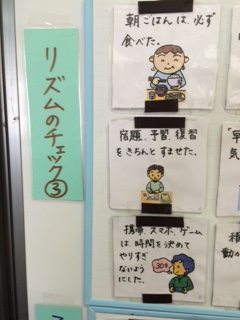 リズムのチェック③
朝ごはんは、必ず
食べた。
宿題、予習、復習
をきちんとすませた。
携帯、スマホ、ゲーム
は、時間を決めて
やりすぎ
ないよう
にした。
30分